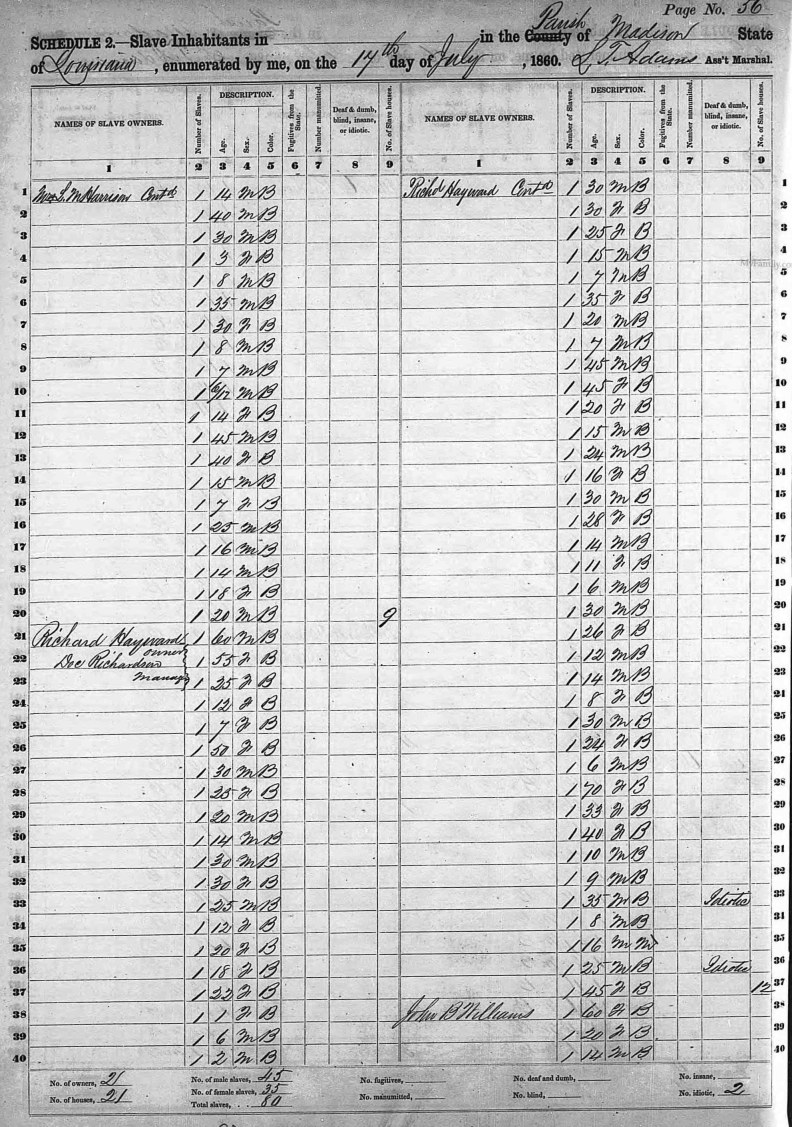 Page No. 56
SCHEDULE 2.—Slave Inhabitants in in the County Parish of Madison State
of Louisiana, enumerated by me, on the 14th day of July, 1860. L. T. Adams Ass't Marshal.
NAMES OF SLAVE OWNERS. Number of Slaves. DESCRIPTION. Age. Sex. Color. Fugitives from the State. Number manumitted. Deaf & dumb, blind, insane, or idiotic. No. of Slave houses. NAMES OF SLAVE OWNERS. Number of Slaves. DESCRIPTION. Age. Sex. Color. Fugitives from the State. Number manumitted. Deaf & dumb, blind, insane, or idiotic. No. of Slave houses.
1 2 3 4 5 6 7 8 9 1 2 3 4 5 6 7 8 9
1 L. McHarrison Contd 1 14 M B Richd Hayward Contd 1 30 M B 1
2 1 40 M B 1 30 F B 2
3 1 30 M B 1 25 F B 3
4 1 3 F B 1 15 M B 4
5 1 8 M B 1 7 M B 5
6 1 35 M B 1 35 F B 6
7 1 30 F B 1 20 M B 7
8 1 8 M B 1 7 M B 8
9 1 7 M B 1 45 M B 9
10 1 6/12 M B 1 45 F B 10
11 1 14 F B 1 20 F B 11
12 1 45 M B 1 15 M B 12
13 1 40 F B 1 24 M B 13
14 1 15 M B 1 16 F B 14
15 1 7 F B 1 30 M B 15
16 1 25 M B 1 28 F B 16
17 1 16 M B 1 14 M B 17
18 1 14 M B 1 11 F B 18
19 1 18 F B 1 6 M B 19
20 1 20 M B 9 1 30 M B 20
21 Richard Hayward owner 1 60 M B 1 26 F B 21
22 Doc Richardson 1 55 F B 1 12 M B 22
23 manager 1 25 F B 1 14 M B 23
24 1 12 F B 1 8 F B 24
25 1 7 F B 1 30 M B 25
26 1 50 F B 1 24 F B 26
27 1 30 M B 1 6 M B 27
28 1 25 F B 1 70 F B 28
29 1 20 M B 1 33 F B 29
30 1 14 M B 1 40 F B 30
31 1 30 M B 1 10 M B 31
32 1 30 F B 1 9 M B 32
33 1 25 M B 1 35 M B Idiotic 33
34 1 12 F B 1 8 M B 34
35 1 20 F B 1 16 M M 35
36 1 18 F B 1 25 M B Idiotic 36
37 1 22 F B 1 45 F B 12 37
38 1 1 F B John B Williams 1 60 F B 38
39 1 6 M B 1 20 F B 39
40 1 2 M B 1 14 M B 40
No. of owners, 21 No. of male slaves, 45 No. fugitives, No. deaf and dumb, No. insane,
No. of houses, 21 No. of female slaves, 35 No. manumitted, No. blind, No. idiotic, 2
Total slaves, 80